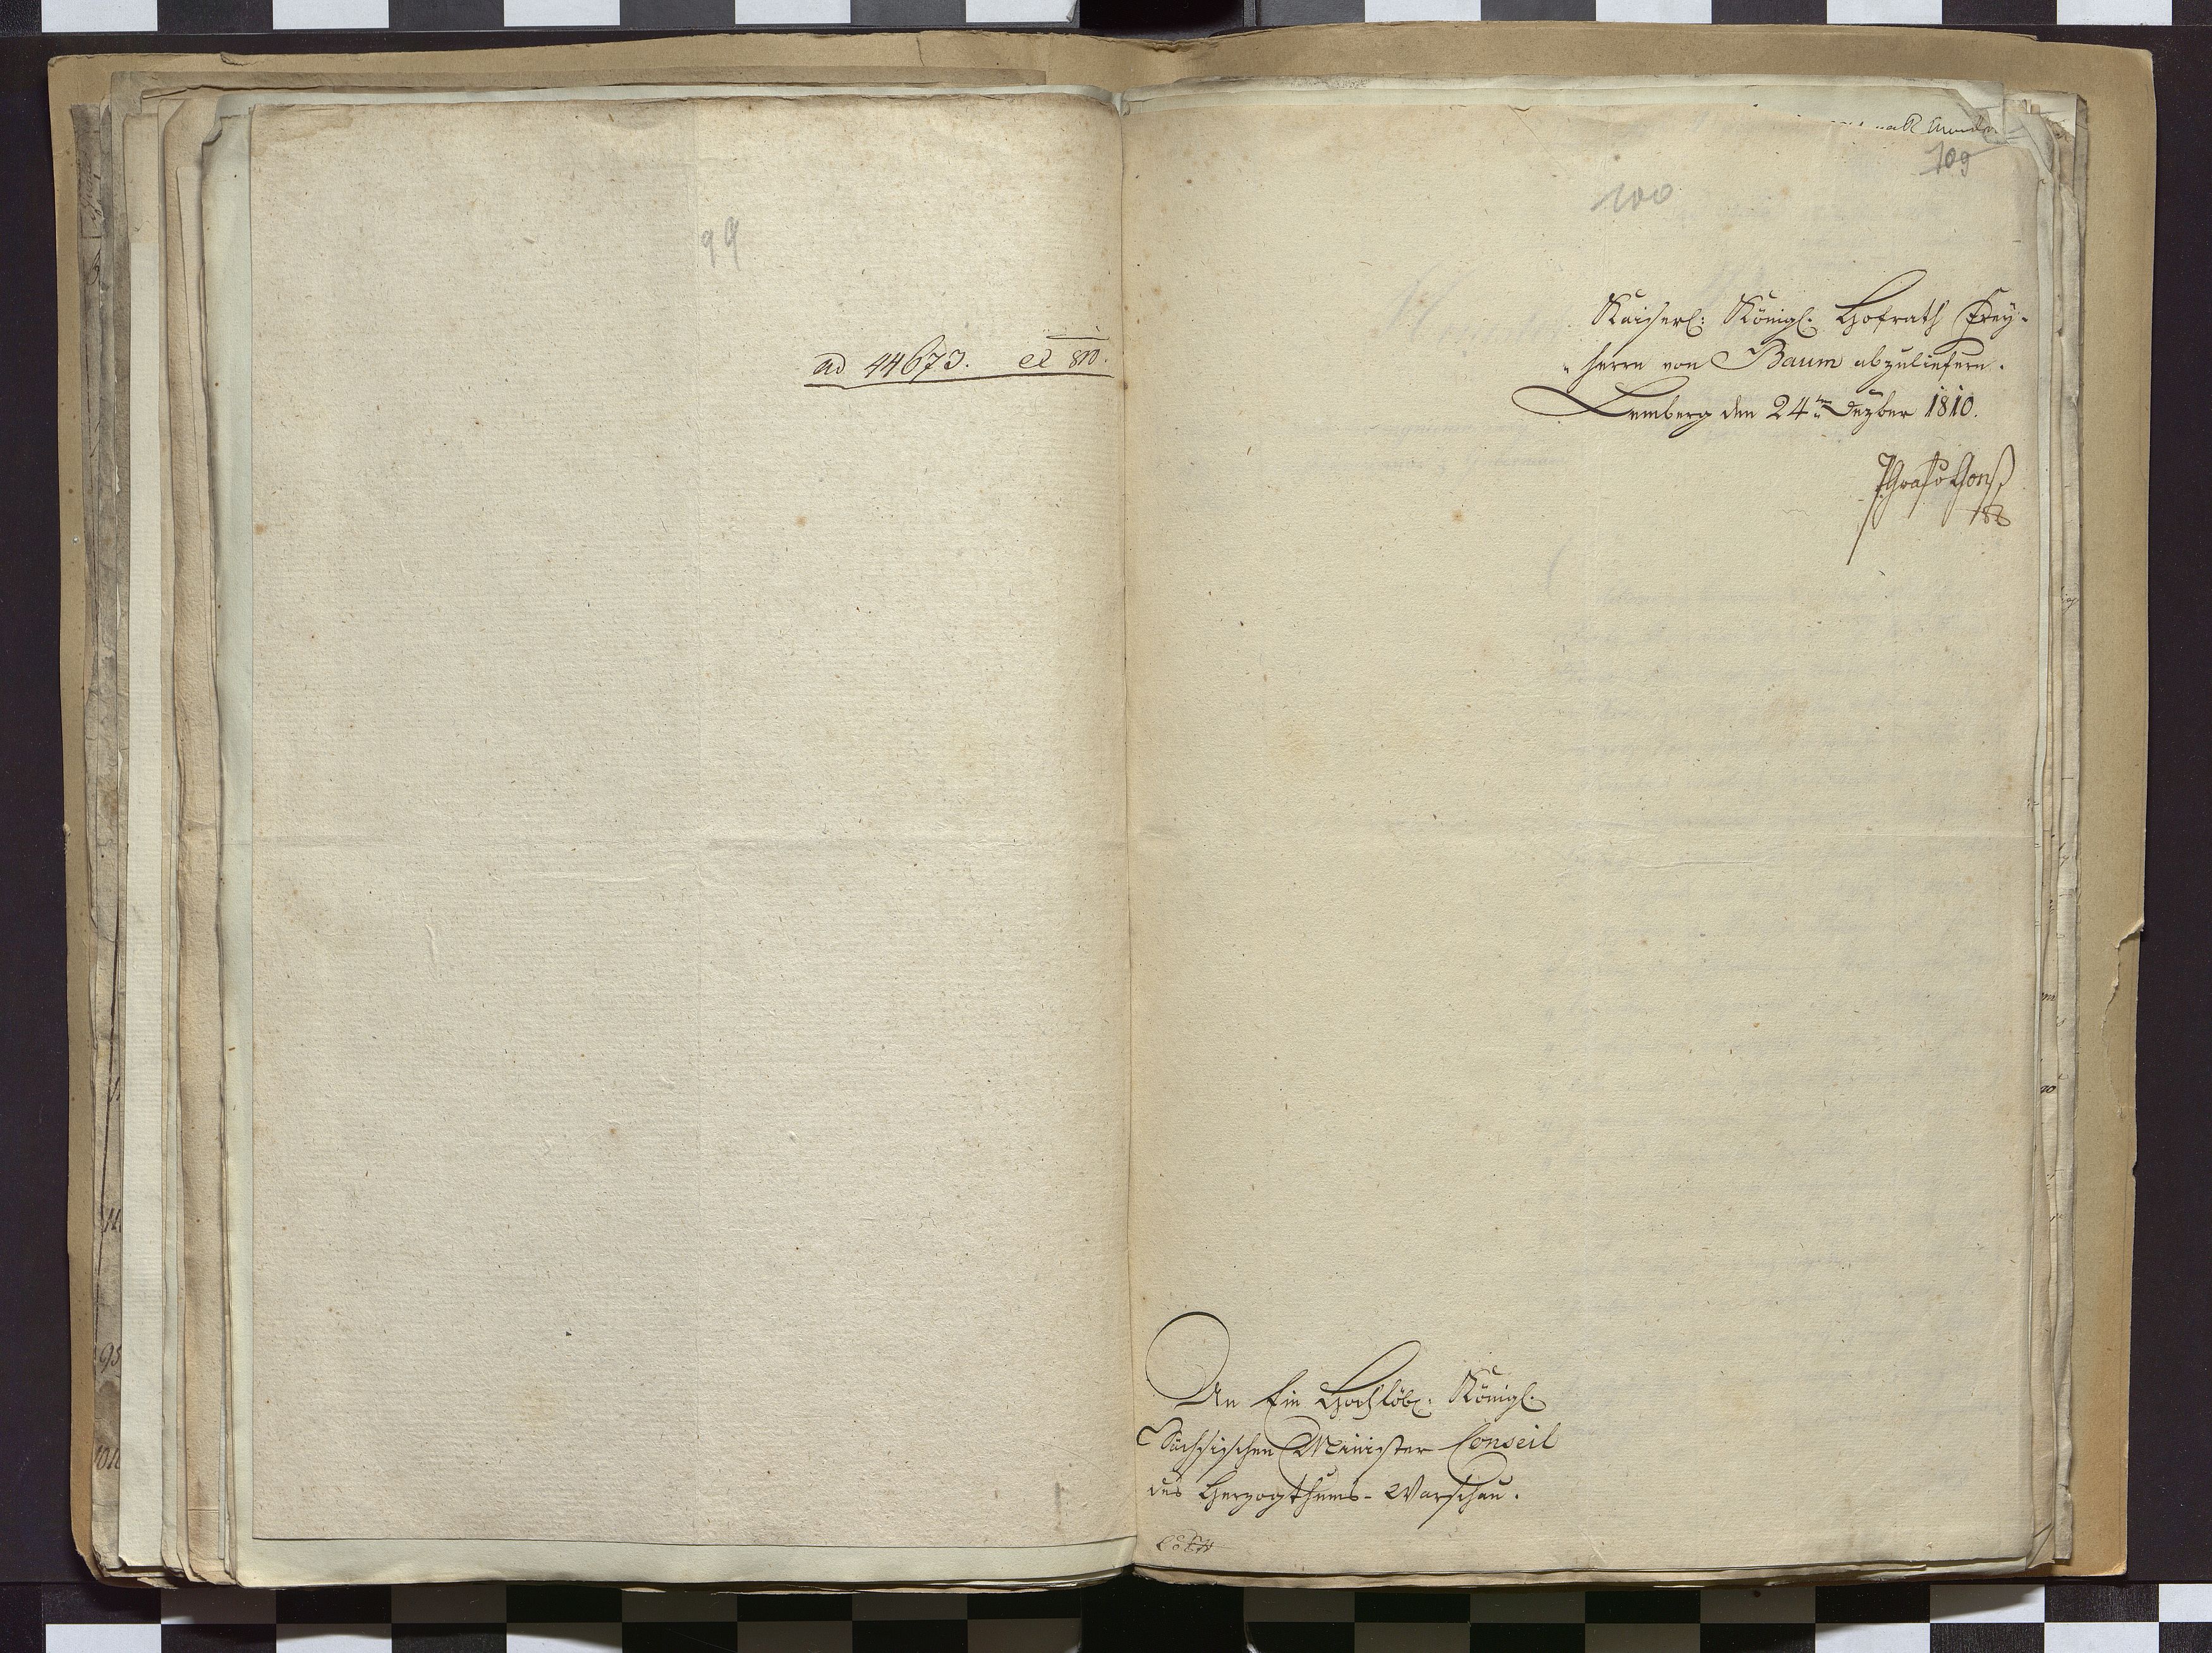 99
ad 44673.
109
100
Kaiserl: Königl. Hofrath Frey-
"herrn von Baum abzuliefern.
Lemberg den 24ten Dezber 1810.
An Ein Hochlöbl: Königl.
Sächsischen Minister Conseil
des Herzogthums-Warschau.